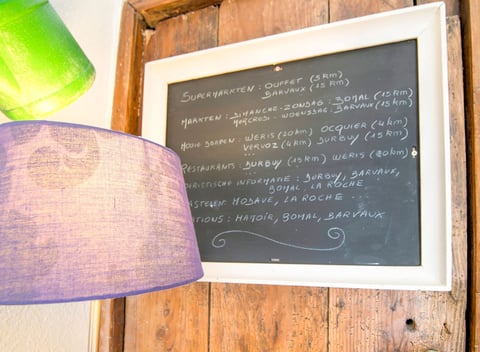 SUPERMARKTEN : OUFFET (5km)
BARVAUX (15km)
MARKTEN : DIMANCHE-ZONDAG : BOMAL (15km)
MERCREDI - WOENSDAG : BARVAUX (15km)
MOOIE DORPEN : WERIS (20km) OCQUIER (4km)
VERVOZ (4km) DURBUY (15km)
...
RESTAURANTS : DURBUY (15km) WERIS (20km)
RISTISCHE INFORMATIE : DURBUY, BARVAUX,
BOMAL, LA ROCHE
ASTELEN : MODAVE, LA ROCHE ...
ATIONS : HAMOIR, BOMAL, BARVAUX